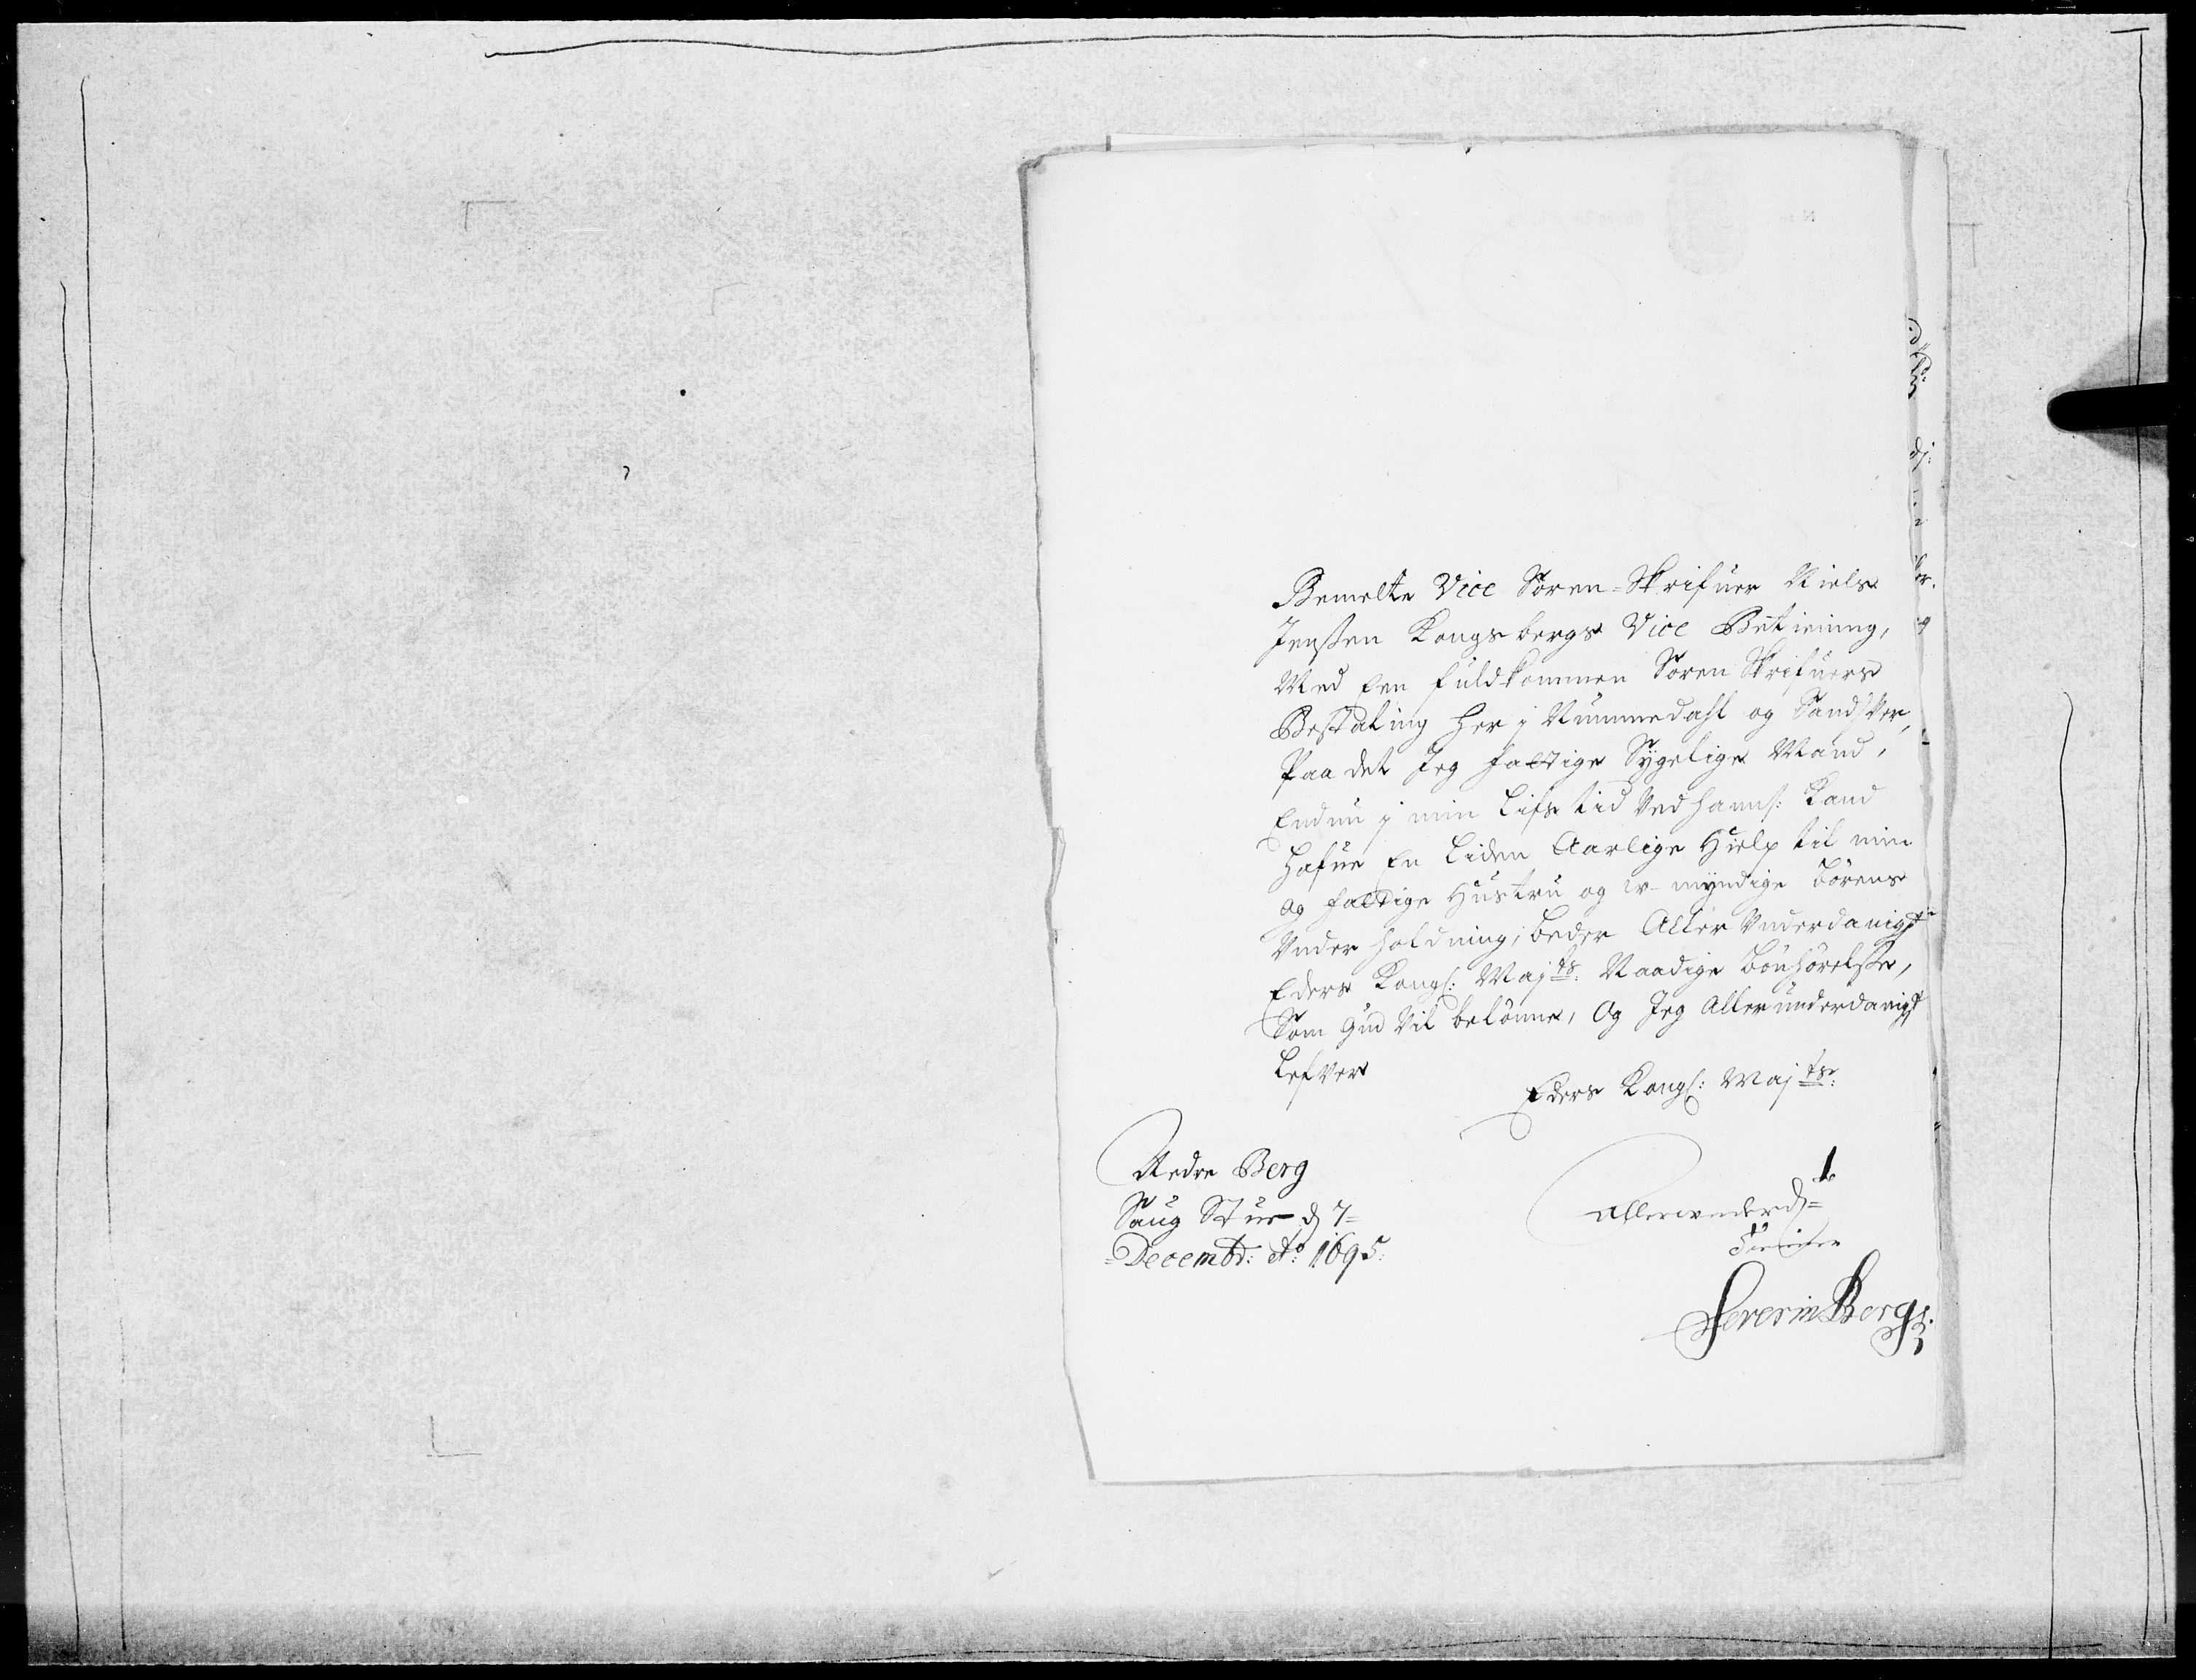 Bemelte Vice Soren-Skrifuer Niels
Jenssen Kongsbergs Vice Betiening,
Med Een fuldkommen Soren Skrifuers
Bestaling her i Nummedahl og Sandsver,
Paa det Jeg fattige Sygelige Mand,
Endnu j min Lifs tid Ved hanns: Kand
Hafue En Liden Aarlige Hielp til min
og fattige Hustru og w-myndige Børens
Vnder holdning; beder Aller Vnderdanigst
Eders Kongl: Majts: Naadige bønhørelsse,
Som Gud Vil belønne, Og Jeg Allerunderdanigst
Lefver
Eders Kongl: Majts:
Nedre Berg
Saug Stue d 7=
Decembr: Ao: 1695:
Allerwnderd=
Tienner
Severin Bergs: